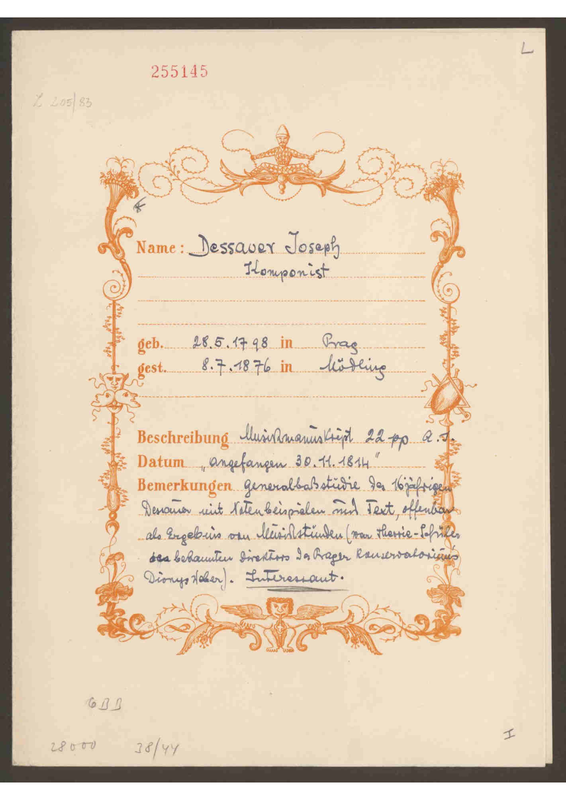 L
255145
L 205/83
Name: Dessauer Joseph
Komponist
geb. 28.5.1798 in Prag
gest. 8.7.1876 in Mödling
Beschreibung Musikmanuskript 22 pp
Datum "angefangen 30.11.1814"
Bemerkungen Generalbaßstudie des 16jährigen
Dessauer mit Notenbeispielen und Text, offenbar
als Ergebnis von Musikstunden (war Theorie-Schüler
des bekannten Direktors des Prager Konservatoriums
Dionys Weber). Interessant.
28000 38/44
I